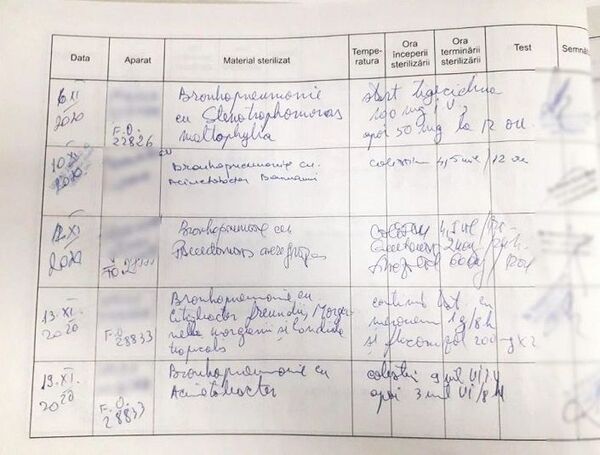 Data
Aparat
Material sterilizat
Tempe-
ratura
Ora
începerii
sterilizării
Ora
terminării
sterilizării
Test
Semnă
6 XI
2020
F.O.
27826
Bronhopneumonie
cu Stenotrophomonas
maltophylia
start tigeciclina
100 mg
apoi 50 mg la 12 ore.
10.XI
2020
Bronhopneumonie cu
Acinetobacter Baumanii
4,5 mil / 12 ore
12.XI
2020
F.O.
Bronhopneumonie cu
Pseudomonas aeruginosa
4,5 mil
13.XI.
2020
F.O.
28833
Bronhopneumonie cu
Citrobacter freundii, Morga-
nella morganii și Candida
tropicals
continuă trat. cu
meronem 1 g/8h
și fluconazol 200 mg x 2
19.XI.
2020
F.O.
28833
Bronhopneumonie cu
Acinetobacter
9 mil UI
apoi 3 mil UI/8h